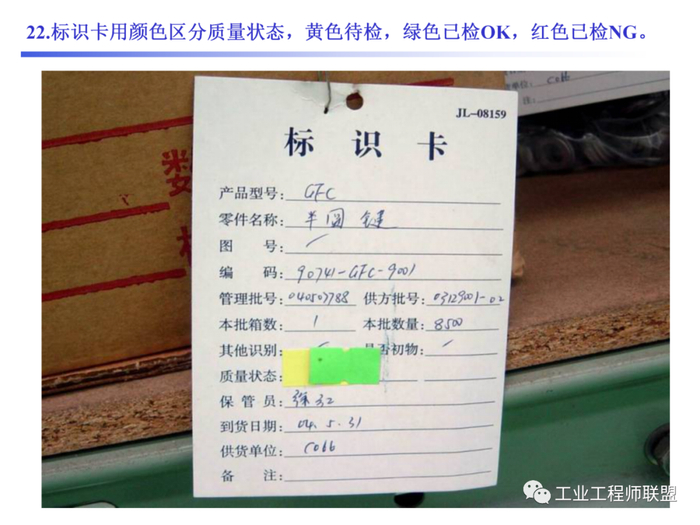 22.标识卡用颜色区分质量状态，黄色待检，绿色已检OK，红色已检NG。
JL-08159
标 识 卡
产品型号: GFC
零件名称: 半圆 键
图 号: /
编 码: 90741-GFC-9001
管理批号: 040507788 供方批号: 03129001-02
本批箱数: 1 本批数量: 8500
其他识别: 是否初物: /
质量状态:
保 管 员:
到货日期: 04.5.31
供货单位:
备 注:
单位:
注:
数
工业工程师联盟